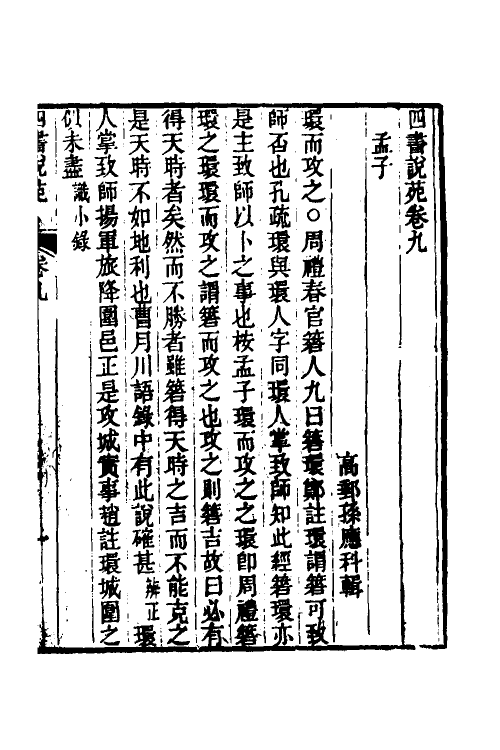 四書說苑卷九
孟子
高郵孫應科輯
環而攻之○周禮春官簭人九曰簭環鄭註環謂簭可致
師否也孔疏環與環人字同環人掌致師知此經簭環亦
是主致師以卜之事也桉孟子環而攻之之環卽周禮簭
環之環環而攻之謂簭而攻之也攻之則簭吉故曰必有
得天時者矣然而不勝者雖簭得天時之吉而不能克之
是天時不如地利也曹月川語錄中有此說確甚辨正環
人掌致師揚軍旅降圍邑正是攻城實事趙註環城圍之
似未盡識小錄
四書說苑 卷九